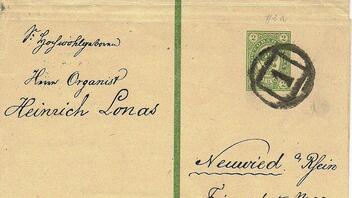 Sr. Hochwohlgeboren
Herrn Organist
Heinrich Lonas
2 2
1
Neuwied a/Rhein